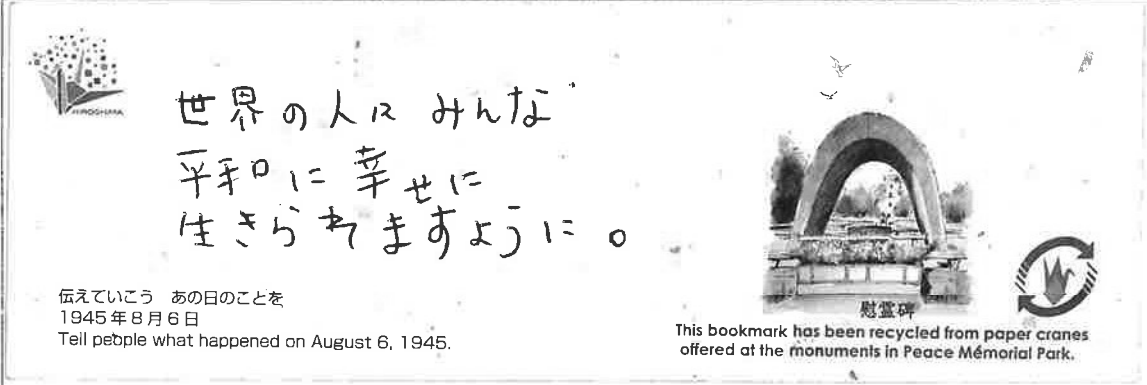 HIROSHIMA
世界の人は みんな
平和に 幸せに
生きられますように。
伝えていこう　あの日のことを
1945年8月6日
Tell people what happened on August 6, 1945.
慰霊碑
This bookmark has been recycled from paper cranes
offered at the monuments in Peace Memorial Park.